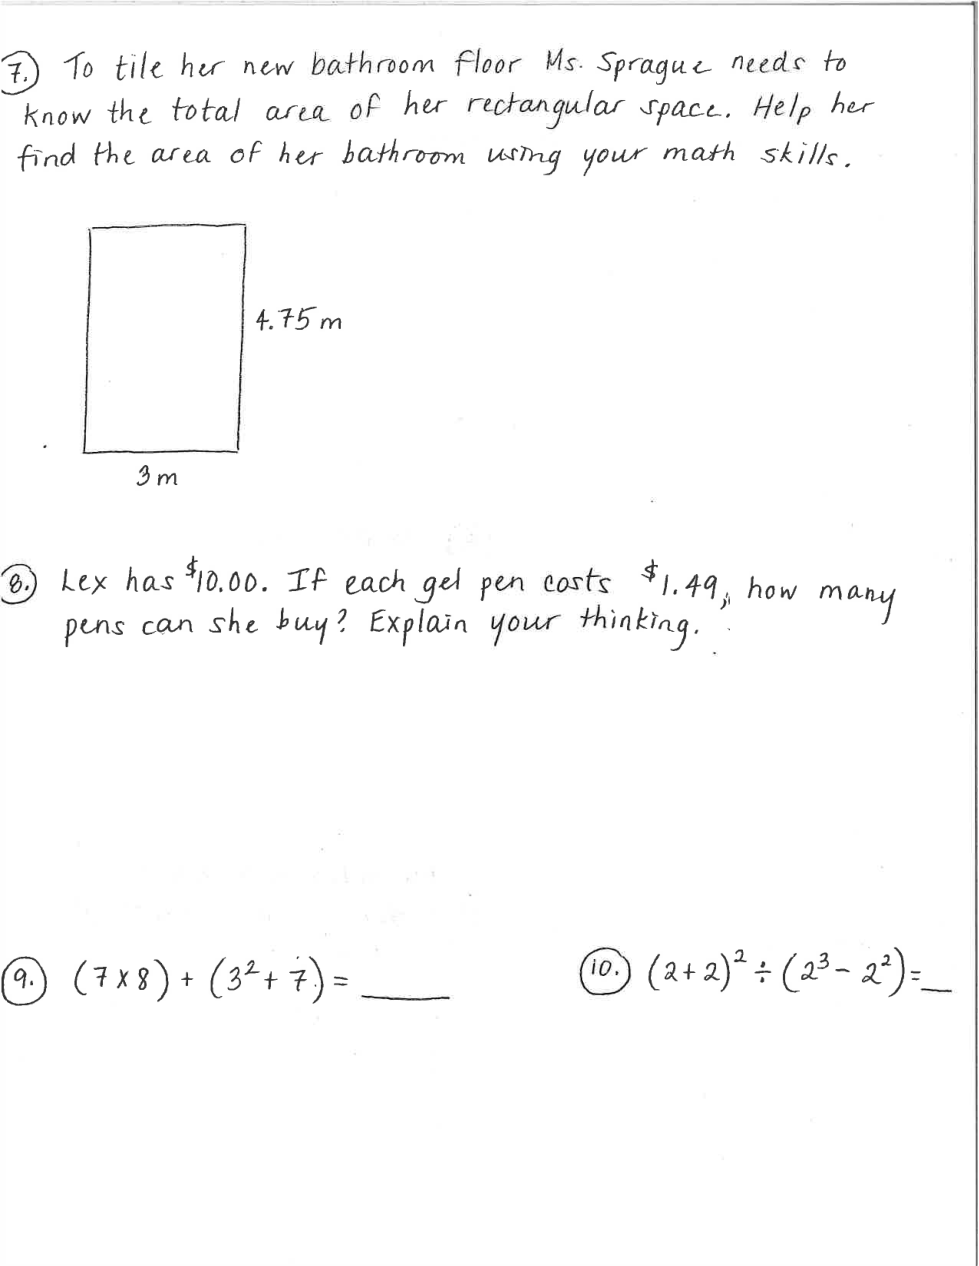 7. To tile her new bathroom floor Ms. Sprague needs to
know the total area of her rectangular space. Help her
find the area of her bathroom using your math skills.
4.75 m
3 m
8. Lex has $10.00. If each gel pen costs $1.49, how many
pens can she buy? Explain your thinking.
9. (7 x 8) + (3² + 7) = ____
10. (2+2)² ÷ (2³ - 2²) = __